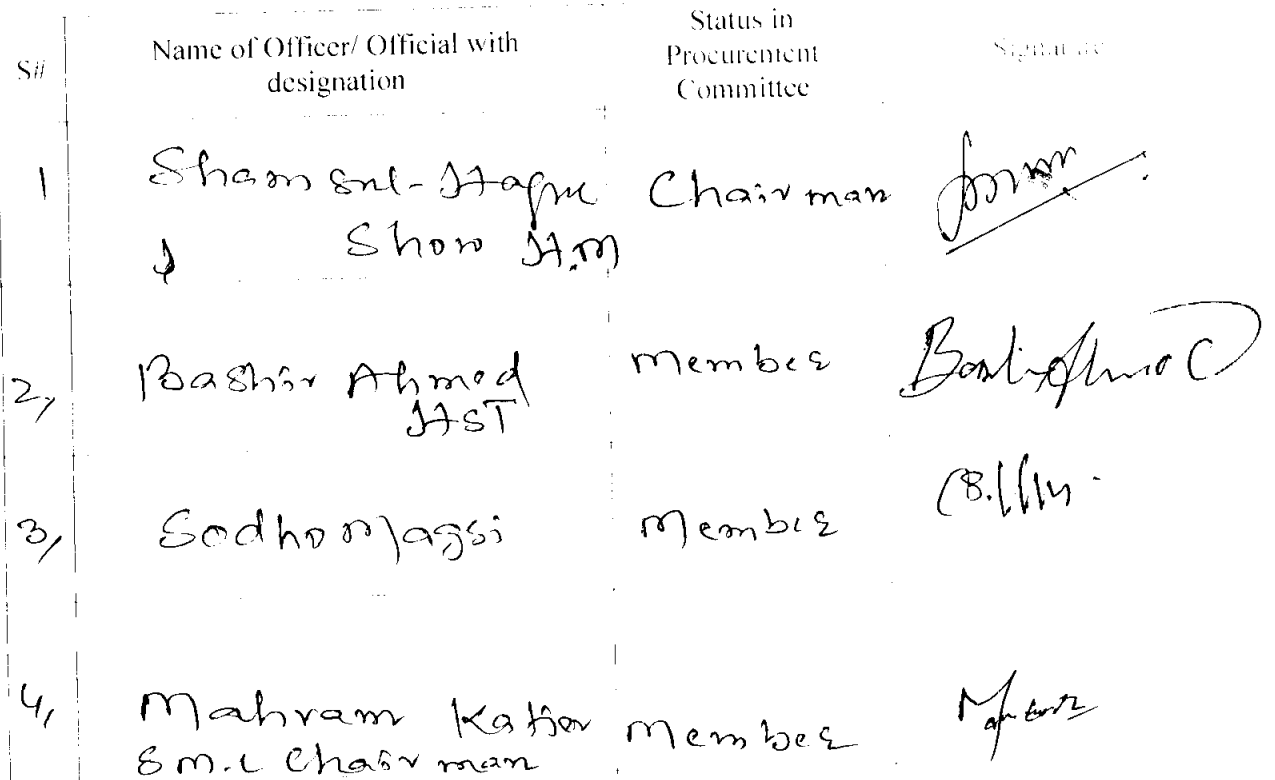 S# Name of Officer/ Official with designation Status in Procurement Committee Signature
1 Shamsul-Haque Chairman
Shoro H.M
2, Bashir Ahmed Member
HST
3, Sodho Magsi Member
4, Mahram Katiar Member
S M.C Chairman